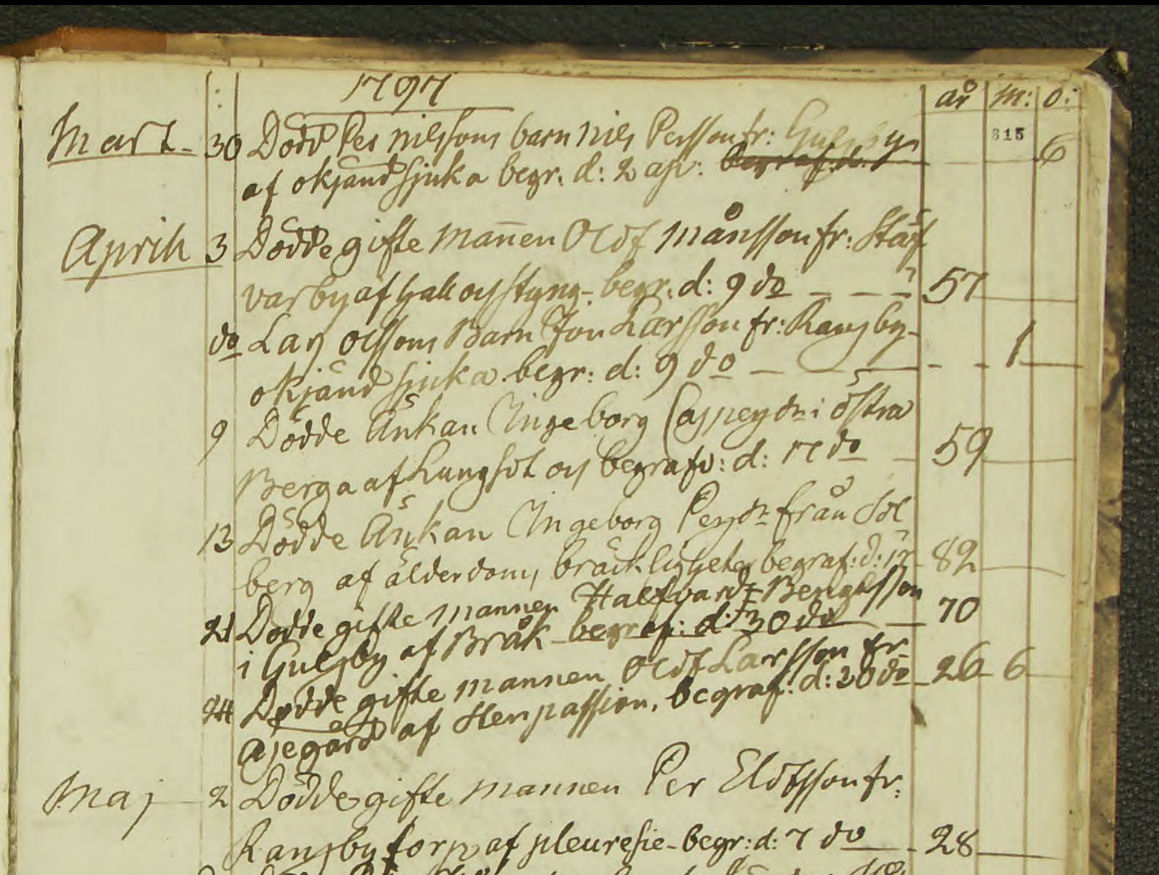 1797
år m: d:
Mart. 30 Dödd Per Nilssons barn Nils Persson fr: Gulsby
615
6
af okjänd sjuka begr. d: 2 apr:
Aprill 3 Dödde gifte Mannen Olof Månsson fr: Staf
varby af håll och styng. begr. d: 9 do 57
do Lars Olssons Barn Jon Larsson fr: Ransby
okjänd sjuka begr: d: 9 do 1
9 Dödde Änkan Ingeborg Caspersdr i Östra
Berga af Lungsot och begrafv: d: 17 do 59
13 Dödde Änkan Ingeborg Persdr från Sol
berg af ålderdoms bräckligheter begraf: d: 82
21 Dödde gifte Mannen Halfvard Bengtsson
i Gulsby af Bråk begraf: d: 30 do 70
24 Dödde gifte Mannen Olof Larsson fr
Ajegård af Stenpassion, begraf: d: 28 do 26 6
Maj 2 Dödde gifte Mannen Per Elofsson fr.
Ransby torp af pleuresie begr: d: 7 do 28